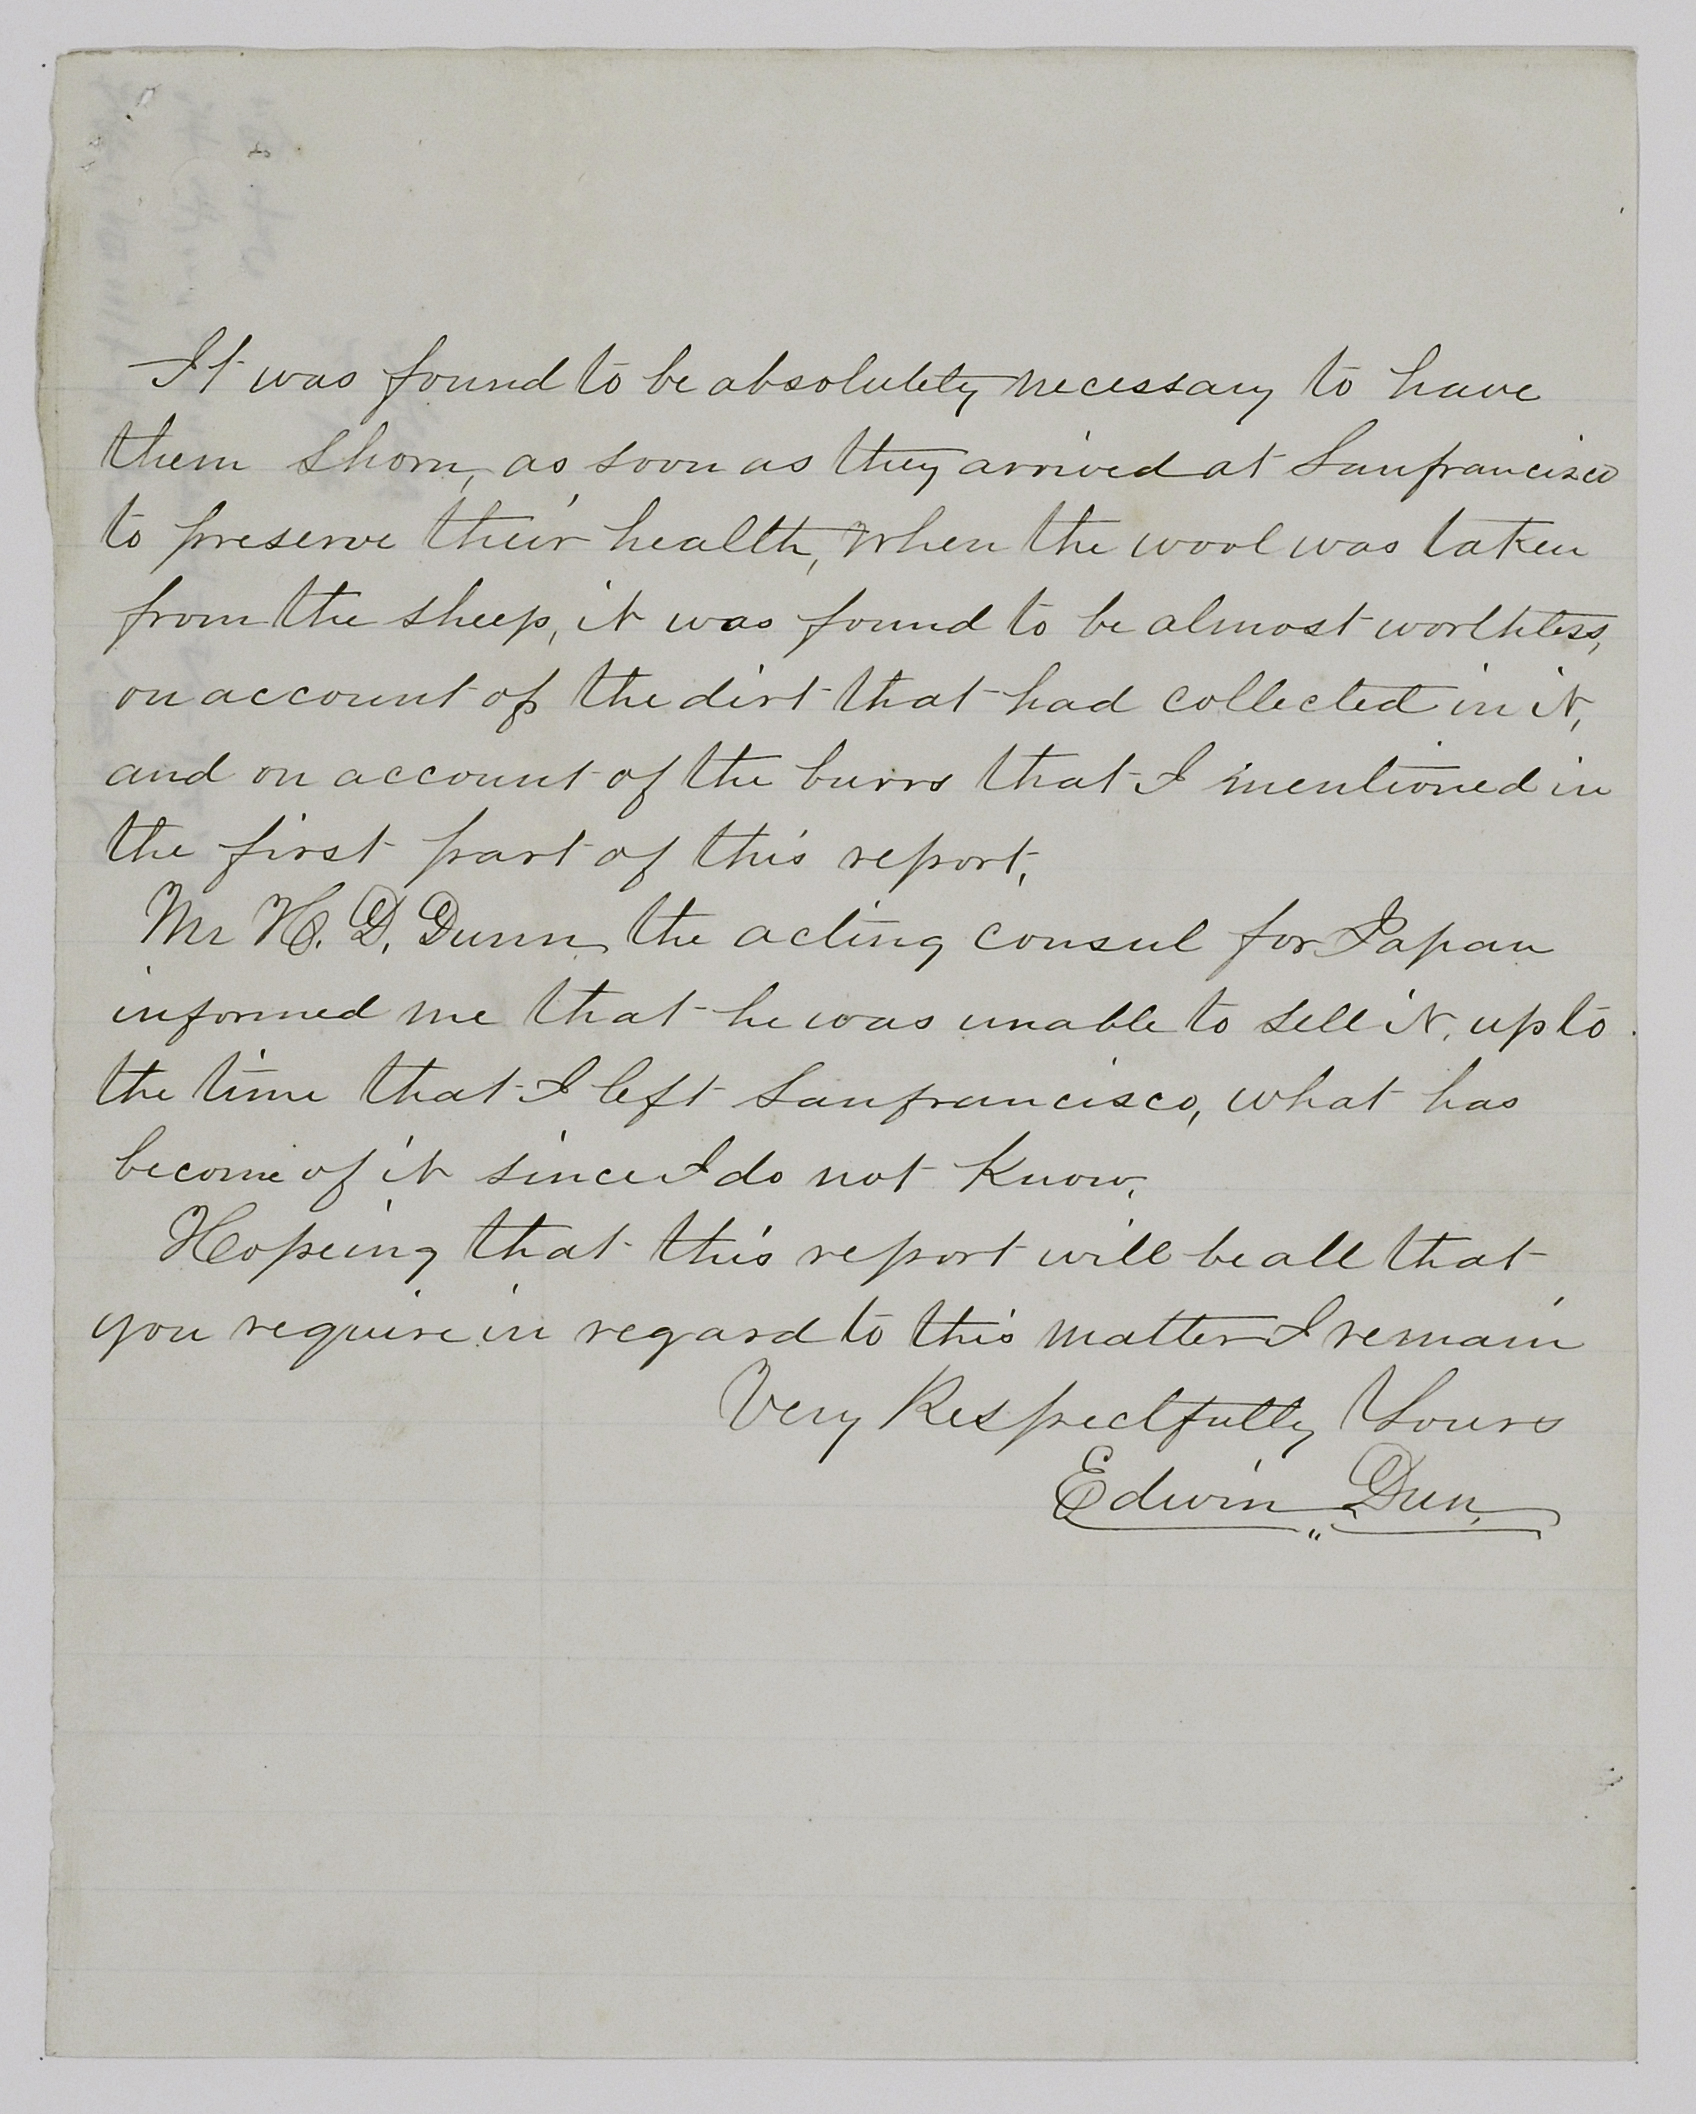 It was found to be absolutely necessary to have
them shorn, as soon as they arrived at Sanfrancisco
to preserve their health, When the wool was taken
from the sheep, it was found to be almost worthless,
on account of the dirt that had collected in it,
and on account of the burrs that I mentioned in
the first part of this report,
Mr H. D. Dunn, the acting consul for Japan
informed me that he was unable to sell it, up to
the time that I left Sanfrancisco, what has
become of it since I do not know,
Hopeing that this report will be all that
you require in regard to this matter I remain
Very Respectfully Yours
Edwin Dun,